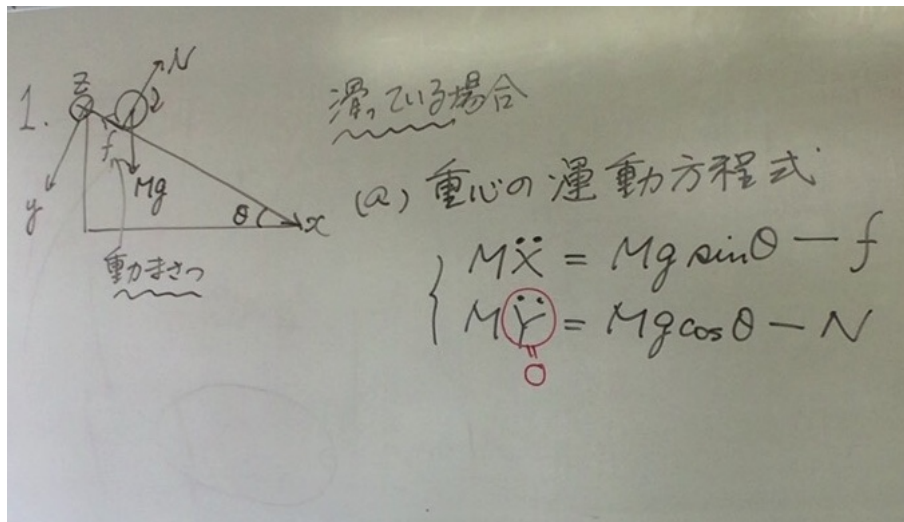 1.
z
N
f
Mg
y
θ
x
動まさつ
滑っている場合
(a) 重心の運動方程式
MẌ = Mg sinθ − f
MŸ = Mg cosθ − N
0